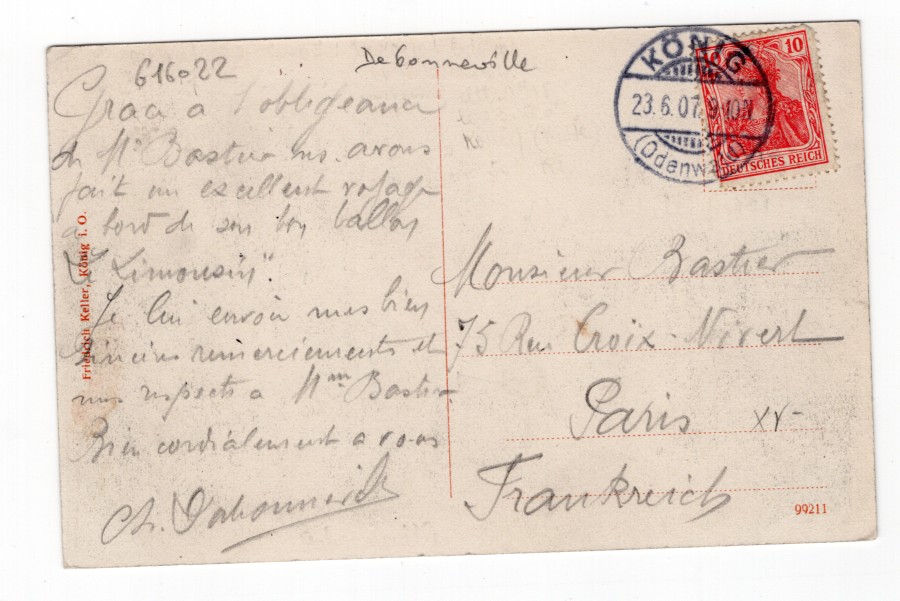 616022
De bonneville
Grace à l'obligeance
de Mr Bastier ns avons
fait un excellent voyage
à bord de son bon ballon
"Le Limousin".
Je lui envoie mes bien
sincères remerciements et
mes respects à Mme Bastier
Bien cordialement à vous
Ch.
Friedrich Keller, König i. O.
KÖNIG
23.6.07. 9-10N.
(Odenwald)
10 10
DEUTSCHES REICH
Monsieur Bastier
75 Rue Croix-Nivert
Paris XV-
Frankreich
99211